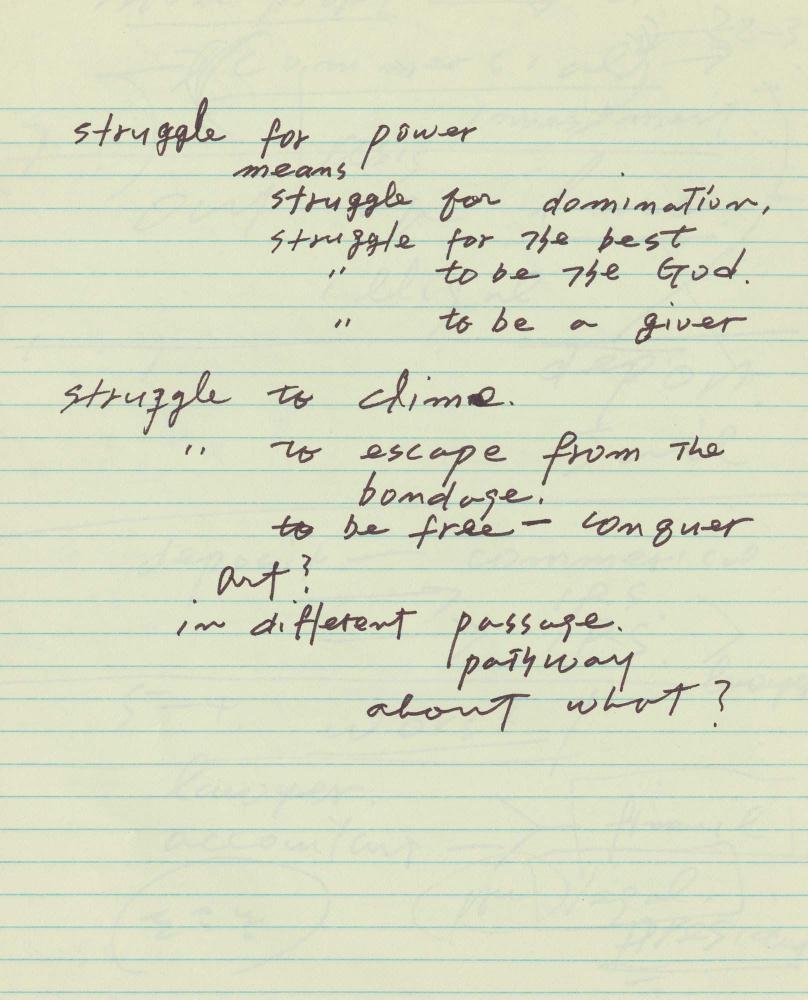 struggle for power
means
struggle for domination,
struggle for the best
" to be the God.
" to be a giver
struggle to clime.
" to escape from the
bondage.
to be free - conquer
art?
in different passage.
pathway
about what?